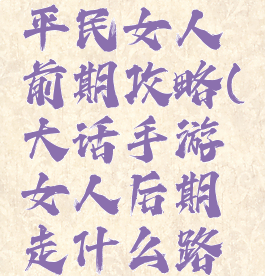 平民女人
前期攻略(
大话手游
女人后期
走什么路